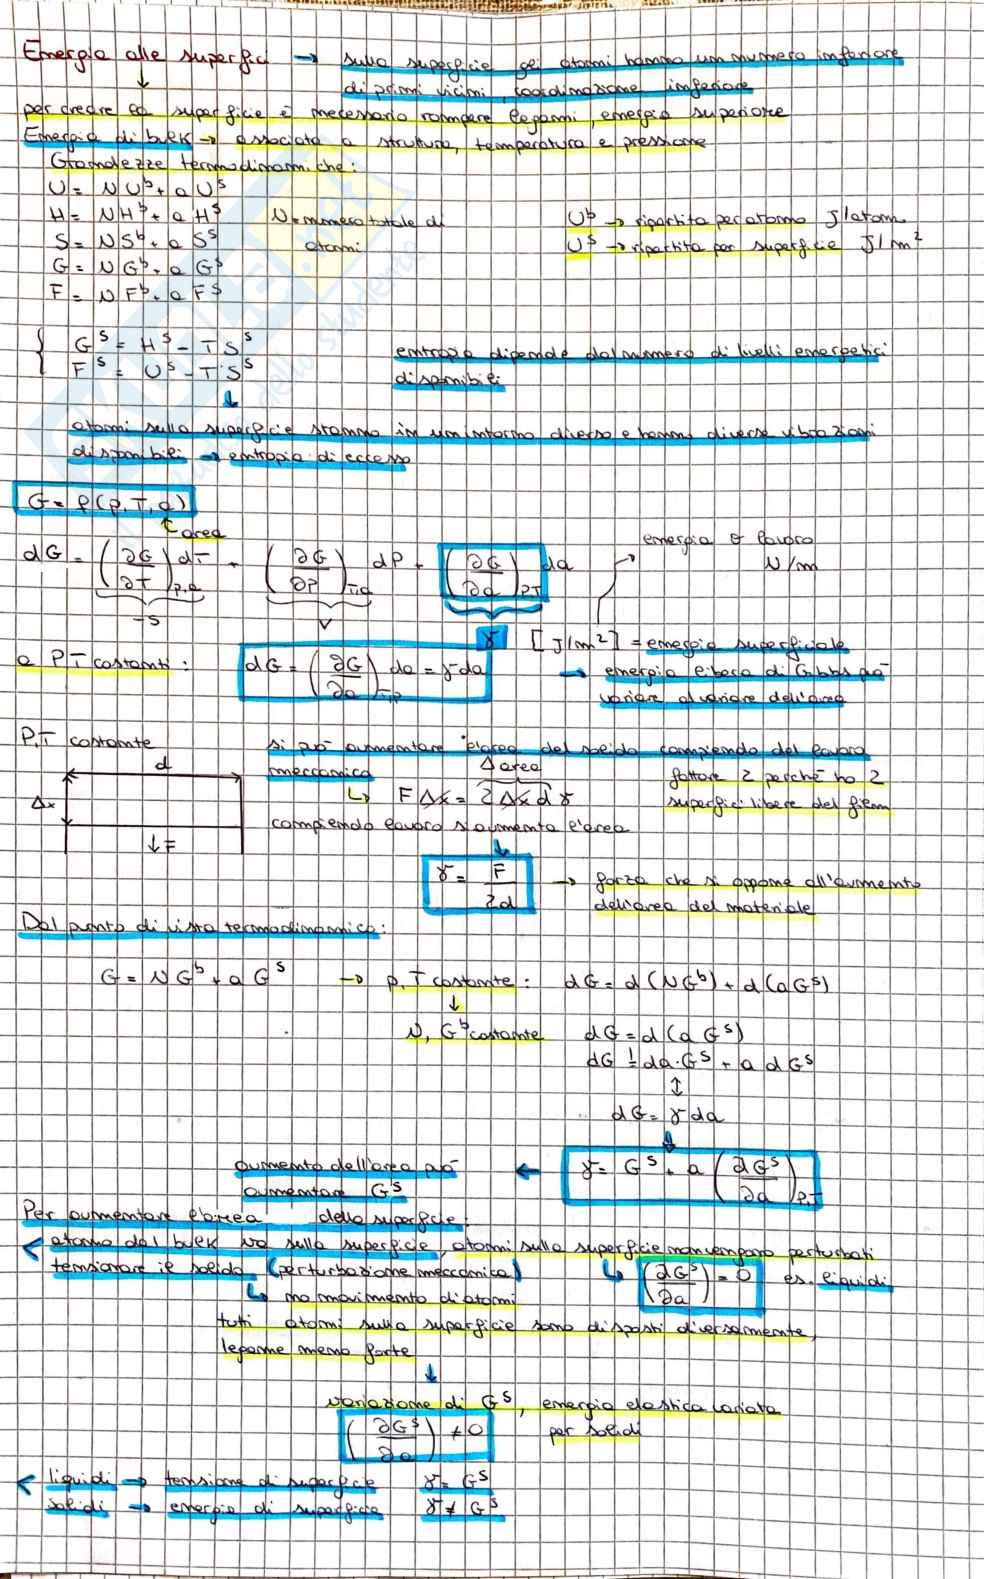 Energia alle superfici → sulla superficie gli atomi hanno un numero inferiore
di primi vicini, coordinazione inferiore
↓
per creare la superficie è necessario rompere legami, energia superiore
Energia di bulk → associata a struttura, temperatura e pressione
Grandezze termodinamiche:
U = N U^b + a U^s
H = N H^b + a H^s N = numero totale di
S = N S^b + a S^s atomi
G = N G^b + a G^s
F = N F^b + a F^s
U^b → ripartita per atomo J/atom
U^s → ripartita per superficie J/m²
{ G^s = H^s - T S^s
F^s = U^s - T S^s
entropia dipende dal numero di livelli energetici
disponibili
↓
atomi sulla superficie stanno in un intorno diverso e hanno diverse vibrazioni
disponibili → entropia di eccesso
G = f(p, T, a)
↑ area
dG = (∂G/∂T)_{P,a} dT + (∂G/∂P)_{T,a} dP + (∂G/∂a)_{P,T} da
-S V γ [J/m²] = energia superficiale
energia o lavoro
N/m
→ energia libera di Gibbs può
variare al variare dell'area
a P T costanti: dG = (∂G/∂a)_{T,P} da = γ da
P, T costante
d
Δx
↓F
si può aumentare l'area del solido compiendo del lavoro
meccanico
Δ area
↳ F Δx = 2 Δx d γ
fattore 2 perché ho 2
superfici libere del film
compiendo lavoro si aumenta l'area
↓
γ = F/2d → forza che si oppone all'aumento
dell'area del materiale
Dal punto di vista termodinamico:
G = N G^b + a G^s → p, T costante: dG = d(N G^b) + d(a G^s)
↓
N, G^b costante dG = d(a G^s)
dG = da · G^s + a dG^s
↕
dG = γ da
↓
γ = G^s + a (∂G^s/∂a)_{P,T}
← aumento dell'area può
aumentare G^s
Per aumentare l'area della superficie:
< atomo dal bulk va sulla superficie, atomi sulla superficie non vengono perturbati
↳ (∂G^s/∂a) = 0 es. liquidi
tensionare il solido (perturbazione meccanica)
↳ no movimento di atomi
tutti atomi sulla superficie sono disposti diversamente,
legame meno forte
↓
variazione di G^s, energia elastica variata
per solidi
(∂G^s/∂a) ≠ 0
< liquidi → tensione di superficie γ = G^s
solidi → energia di superficie γ ≠ G^s